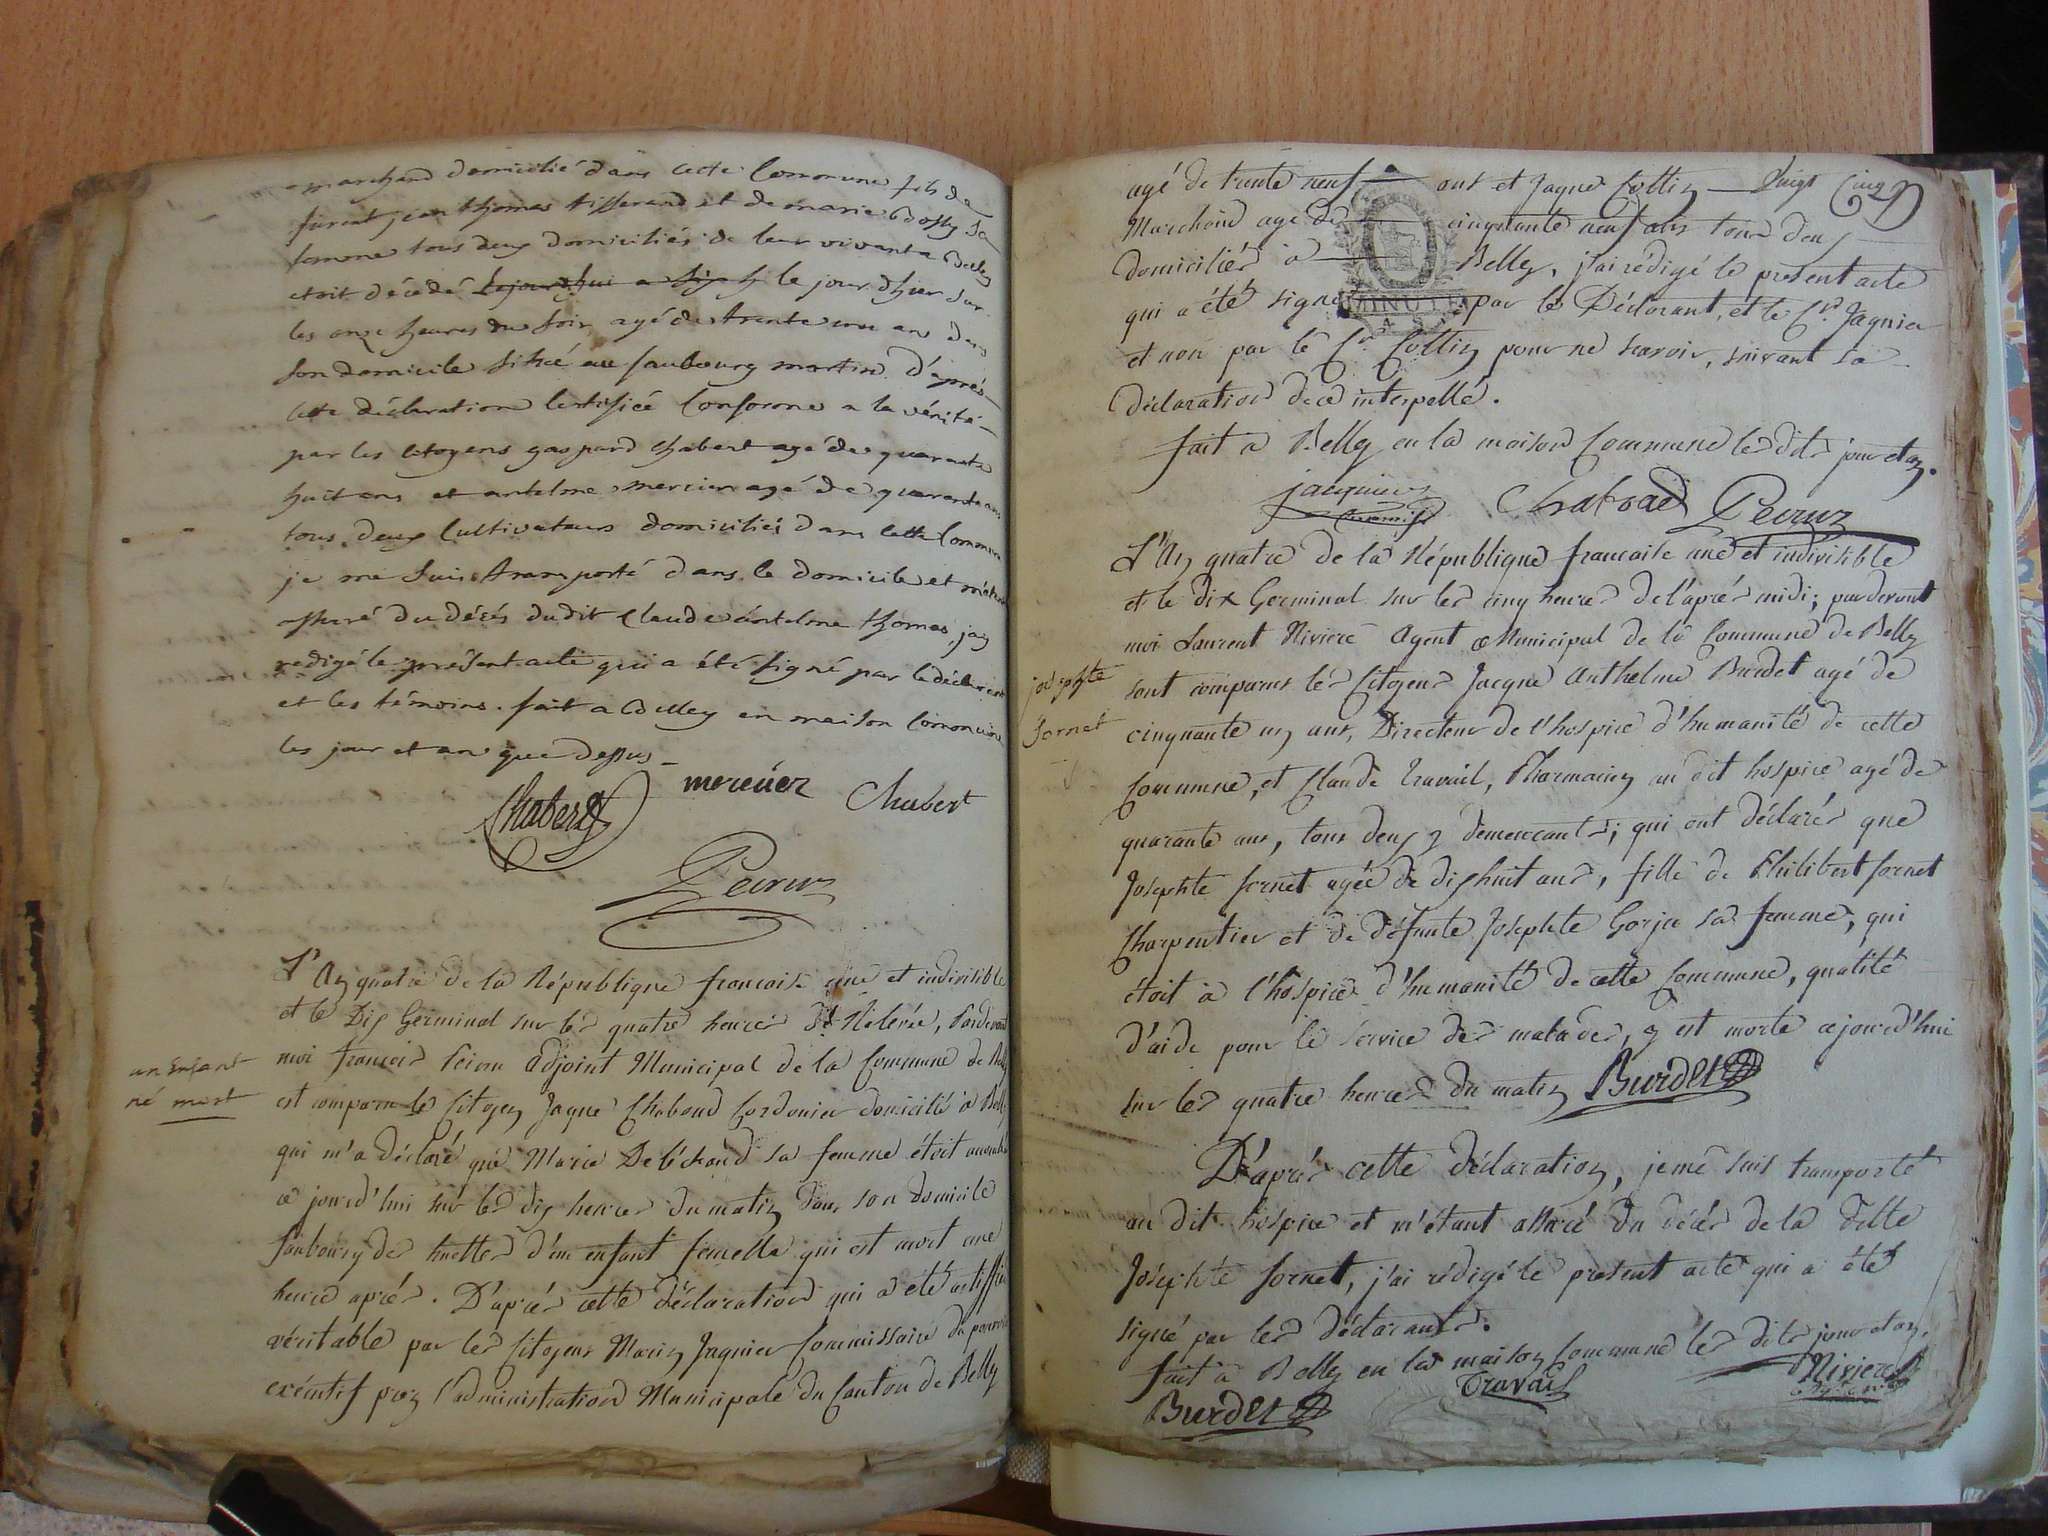 marchand domicilié dans cette Commune fils de
furent jean thomas tisserand et de marie sa
femme tous deux domiciliés de leur vivant a Belley
etoit décédé le jour dhier sur
les onze heures du soir, agé de trente un ans dans
son domicile situé au faubourg martin. D'après
cette déclaration Certifiée Conforme a la vérité
par les citoyens gaspard chabert agé de quarante
huit ans et antelme mercier agé de quarante ans
tous deux Cultivateurs domiciliés dans cette Commune
je me suis transporté dans le domicile et m'etant
assuré du décès dudit Claude antelme thomas, jay
redigé le présent acte qui a été signé par le déclarant
et les témoins. fait a Belley en maison Commune
les jour et an que dessus
Chabert mercier Chabert
Peysson
L'An quatre de la République francoise une et indivisible
et le Dix Germinal sur les quatre heures de Relevée, Pardevant
moi francois adjoint Municipal de la Commune de Belley
un Enfant
né mort
est comparu le Citoyen Jaque Chaboud Cordonier domicilié à Belley
qui m'a déclaré que Marie sa femme étoit accouchée
ce jourd'hui sur les dix heures du matin dans son domicile
faubourg des d'un enfant femelle qui est mort une
heure après. D'après cette déclaration qui a été certiffiée
véritable par les Citoyens Marin Jagnier Commissaire du pouvoir
exécutif près l'administration Municipale du Canton de Belley
Vingt Cinq
agé de trente neuf ans et Jaque Cottin
Marchand agé de cinquante neuf ans tous deux
domiciliés à Belley, j'ai rédigé le présent acte
MINUTE
qui a été signé par le Déclarant, et le Cn. Jagnier
et non par le Cn Cottin pour ne scavoir, suivant sa
déclaration de ce interpellé.
fait a Belley en la maison Commune les dits jour et an.
jagnier Chaboud
L'An quatre de la République francaise une et indivisible
et le dix Germinal sur les cinq heures de l'après midi; pardevant
moi Laurent Riviere Agent Municipal de la Commune de Belley
josephte
fornet
sont comparus les Citoyens Jacque Anthelme Burdet agé de
cinquante un ans, Directeur de l'hospice d'humanité de cette
Commune, et Claude Travail, Pharmacien au dit hospice agé de
quarante ans, tous deux y demeurants; qui ont déclarés que
Josephte fornet agée de dix huit ans, fille de Philibert fornet
Charpentier et de défunte Josephte Gorju sa femme, qui
étoit à l'hospice d'humanité de cette Commune, qualité
d'aide pour le service des malades, y est morte ce jourd'hui
sur les quatre heures du matin Burdet
D'après cette déclaration, je me suis transporté
au dit hospice et m'étant assuré du décès de la ditte
Josephte fornet, j'ai rédigé le présent acte qui a été
signé par les déclarants.
fait à Belley en la maison commune les dits jour et an.
Burdet Travail Riviere